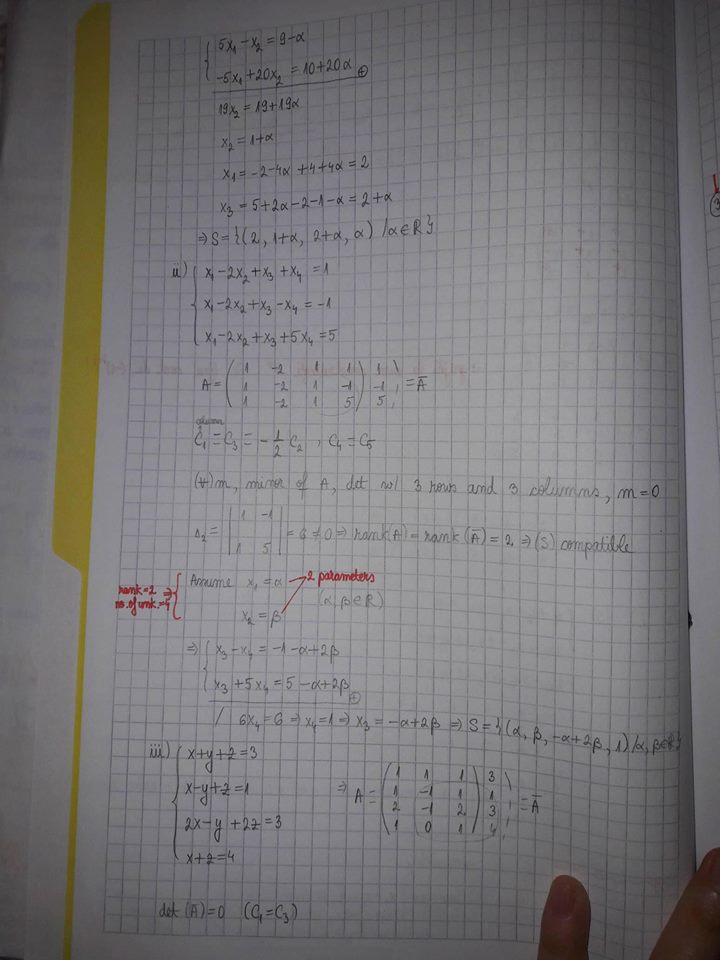 5x₁ - x₂ = 9 - α
-5x₁ + 20x₂ = 10 + 20α ⊕
19x₂ = 19 + 19α
x₂ = 1 + α
x₁ = -2 - 4α + 4 + 4α = 2
x₃ = 5 + 2α - 2 - 1 - α = 2 + α
⇒ S = {(2, 1+α, 2+α, α) / α ∈ ℝ}
ii) x₁ - 2x₂ + x₃ + x₄ = 1
x₁ - 2x₂ + x₃ - x₄ = -1
x₁ - 2x₂ + x₃ + 5x₄ = 5
1 -2 1 1 1
A = 1 -2 1 -1 -1 = Ā
1 -2 1 5 5
column
C₁ = C₃ = -1/2 C₂ , C₄ = C₅
(∀) m, minor of A, det w/ 3 rows and 3 columns, m = 0
Δ₂ = | 1 -1 |
| 1 5 | = 6 ≠ 0 ⇒ rank(A) = rank(Ā) = 2 ⇒ (S) compatible
rank = 2 ⇒
no. of unk. = 4
Assume x₁ = α 2 parameters
x₂ = β (α, β ∈ ℝ)
⇒ x₃ - x₄ = -1 - α + 2β
x₃ + 5x₄ = 5 - α + 2β ⊕
/ 6x₄ = 6 ⇒ x₄ = 1 ⇒ x₃ = -α + 2β ⇒ S = {(α, β, -α+2β, 1) / α, β ∈ ℝ}
iii) x + y + z = 3
x - y + z = 1
2x - y + 2z = 3
x + z = 4
1 1 1 3
⇒ A = 1 -1 1 1 = Ā
2 -1 2 3
1 0 1 4
det (Ā) = 0 (C₁ = C₃)